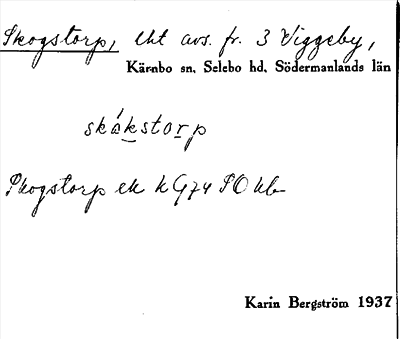 Skogstorp, lht avs. fr. 3 Viggeby,
Kärnbo sn, Selebo hd, Södermanlands län
skákstorp
Skogstorp ek k G74 SO kb
Karin Bergström 1937